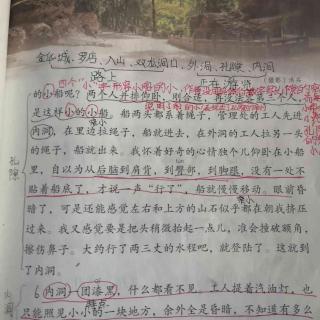 金华城、罗店、入山、双龙洞口、外洞、孔隙、内洞
路上
四个“小”
的小船呢？两个人并排仰卧，刚合适，再没法容第三个人，
是这样小的小船。船两头都系着绳子，管理处的工人先进
内洞，在里边拉绳子，船就进去，在外洞的工人拉另一头
的绳子，船就出来。我怀着好奇的心情独个儿仰卧在小船
里，自以为从后脑到肩背，到臀部，到脚跟，没有一处不
贴着船底了，才说一声“行了”，船就慢慢移动。眼前昏
暗了，可是还能感觉左右和上方的山石似乎都在朝我挤压
过来。我又感觉要是把头稍微抬起一点儿，准会撞破额角，
擦伤鼻子。大约行了两三丈的水程吧，就登陆了。这就到
了内洞。
孔隙
6 内洞一团漆黑，什么都看不见。工人提着汽油灯，也
只能照见小小的一块地方，余外全是昏暗，不知道有多么